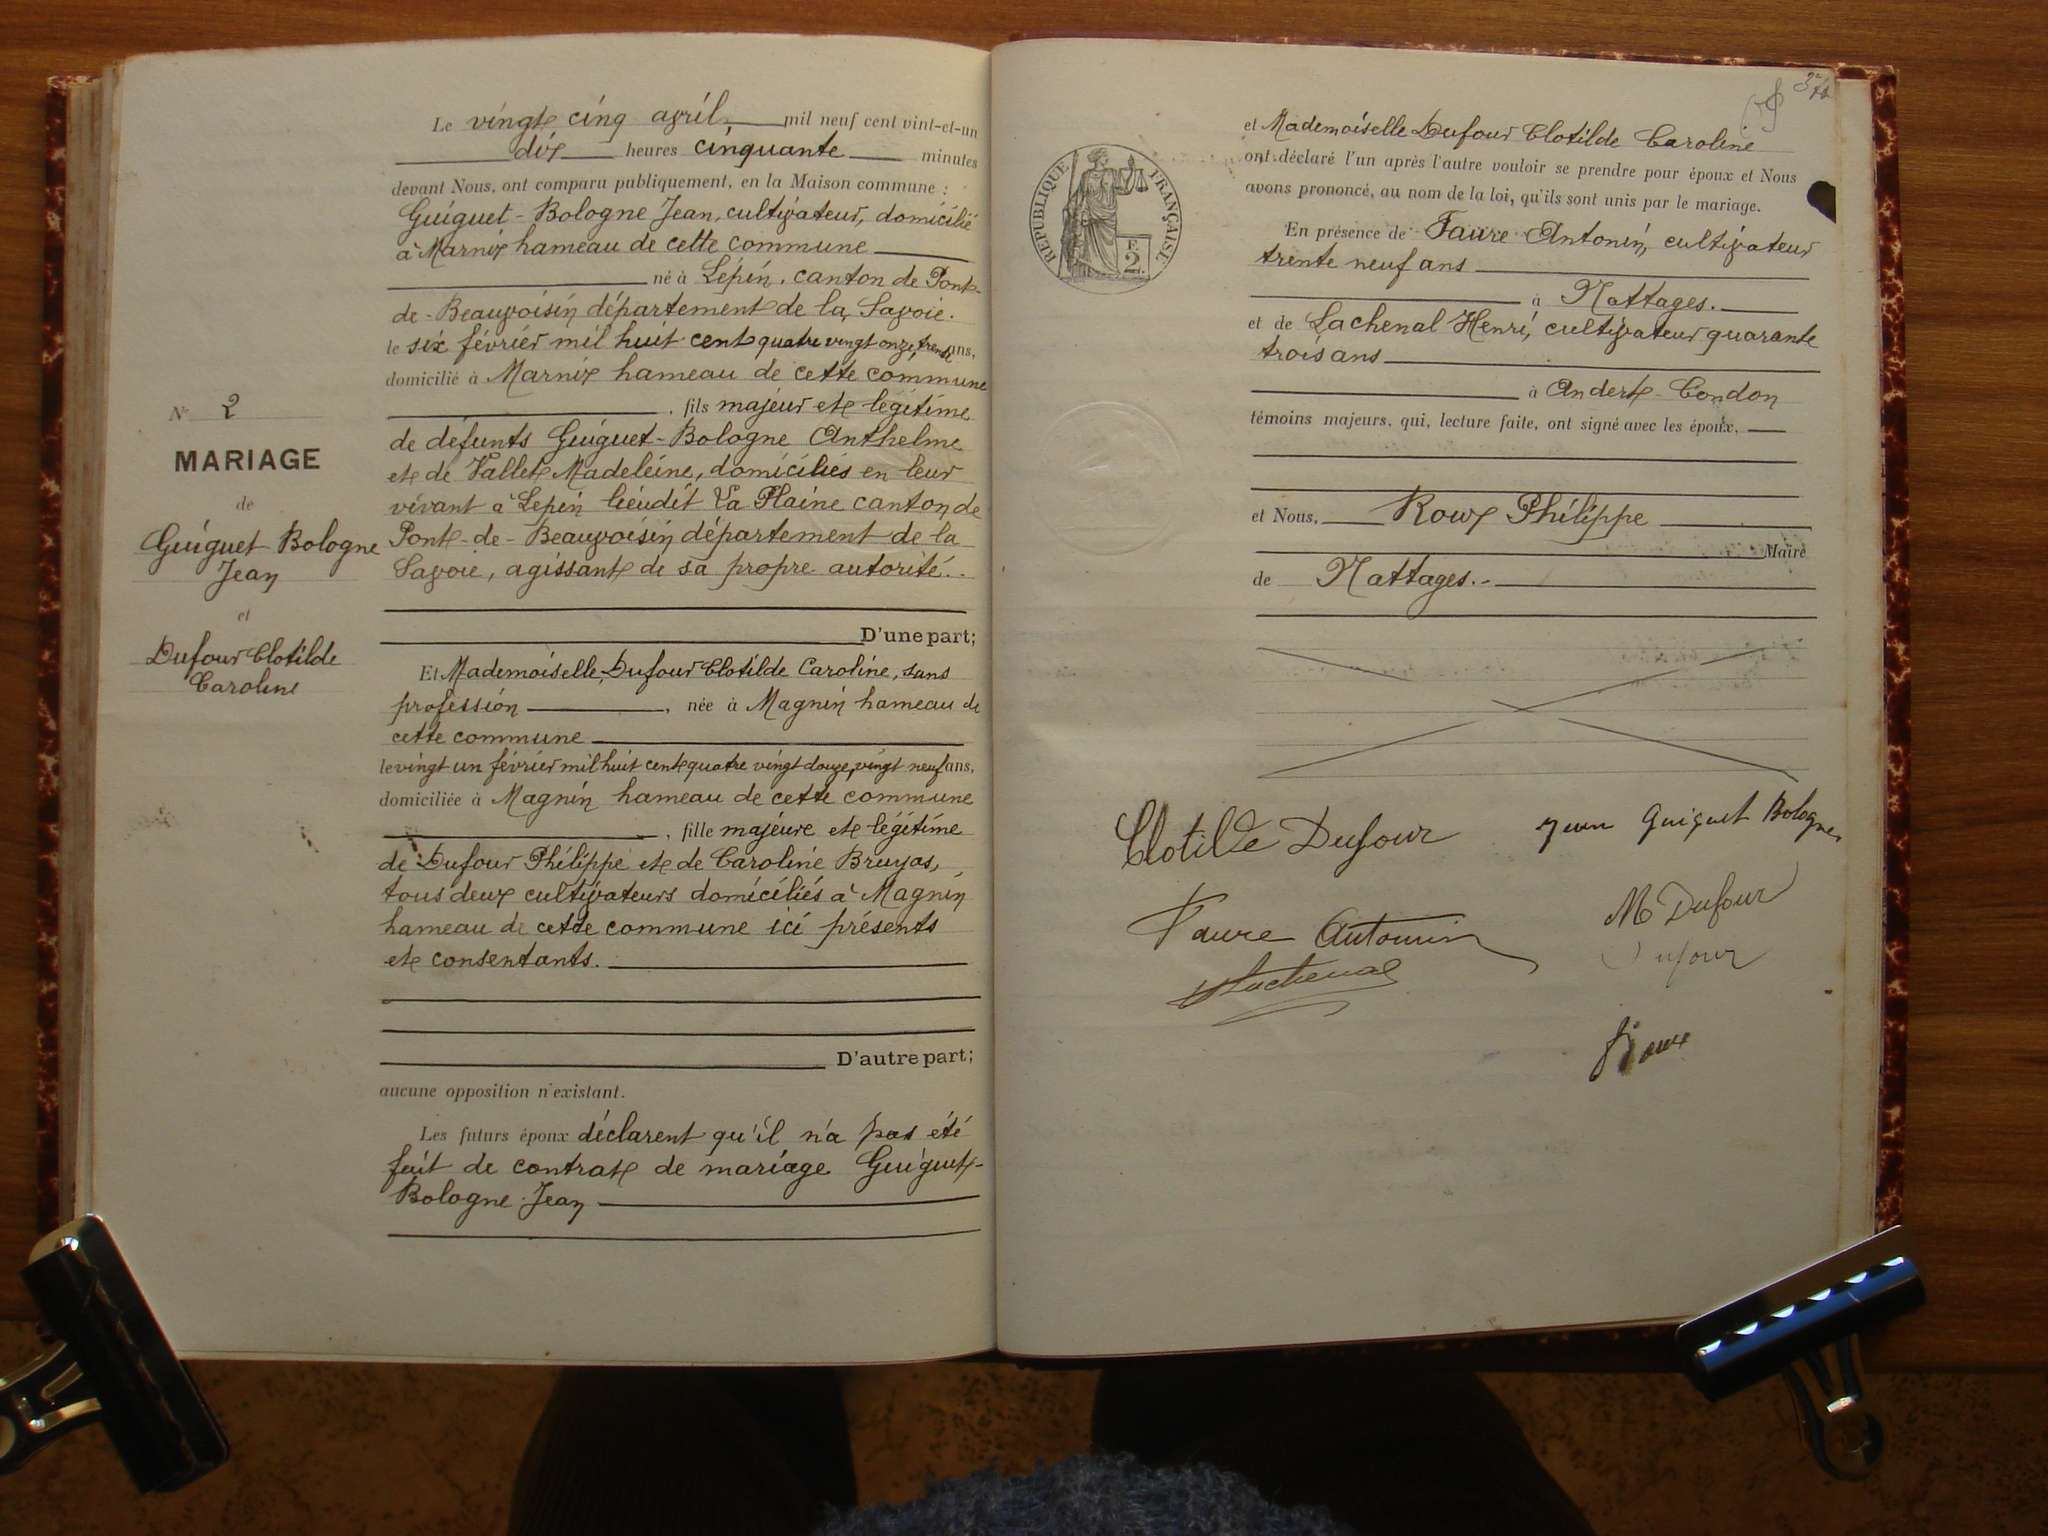 Le vingt cinq avril mil neuf cent vint-et-un
dix heures cinquante minutes
devant Nous, ont comparu publiquement, en la Maison commune :
Guiguet-Bologne Jean, cultivateur, domicilié
à Marnix hameau de cette commune
né à Lépin, canton de Pont-
de-Beauvoisin département de la Savoie.
le six février mil huit cent quatre vingt onze, trente ans,
domicilié à Marnix hameau de cette commune
, fils majeur et légitime
de défunts Guiguet-Bologne Anthelme
et de Vallet Madeleine, domiciliés en leur
vivant à Lepin lieudit La Plaine canton de
Pont-de-Beauvoisin département de la
Savoie, agissant de sa propre autorité.
D'une part;
Et Mademoiselle Dufour Clotilde Caroline, sans
profession, née à Magnin hameau de
cette commune
le vingt un février mil huit cent quatre vingt douze, vingt neuf ans,
domiciliée à Magnin hameau de cette commune
, fille majeure et légitime
de Dufour Philippe et de Caroline Bruyas,
tous deux cultivateurs domiciliés à Magnin
hameau de cette commune ici présents
et consentants.
D'autre part;
aucune opposition n'existant.
Les futurs époux déclarent qu'il n'a pas été
fait de contrat de mariage Guiguet-
Bologne Jean
N° 2
MARIAGE
de
Guiguet Bologne
Jean
et
Dufour Clotilde
Caroline
RÉPUBLIQUE FRANÇAISE
F.
2
et Mademoiselle Dufour Clotilde Caroline
ont déclaré l'un après l'autre vouloir se prendre pour époux et Nous
avons prononcé, au nom de la loi, qu'ils sont unis par le mariage.
En présence de Faure Antonin, cultivateur
trente neuf ans
à Nattages.
et de Lachenal Henri, cultivateur quarante
trois ans
à Andert-Condon
témoins majeurs, qui, lecture faite, ont signé avec les époux,
et Nous, Roux Philippe
Maire
de Nattages.
Clotilde Dufour Jean Guiguet Bologne
Faure Antonin M Dufour
Lachenal Dufour
Roux